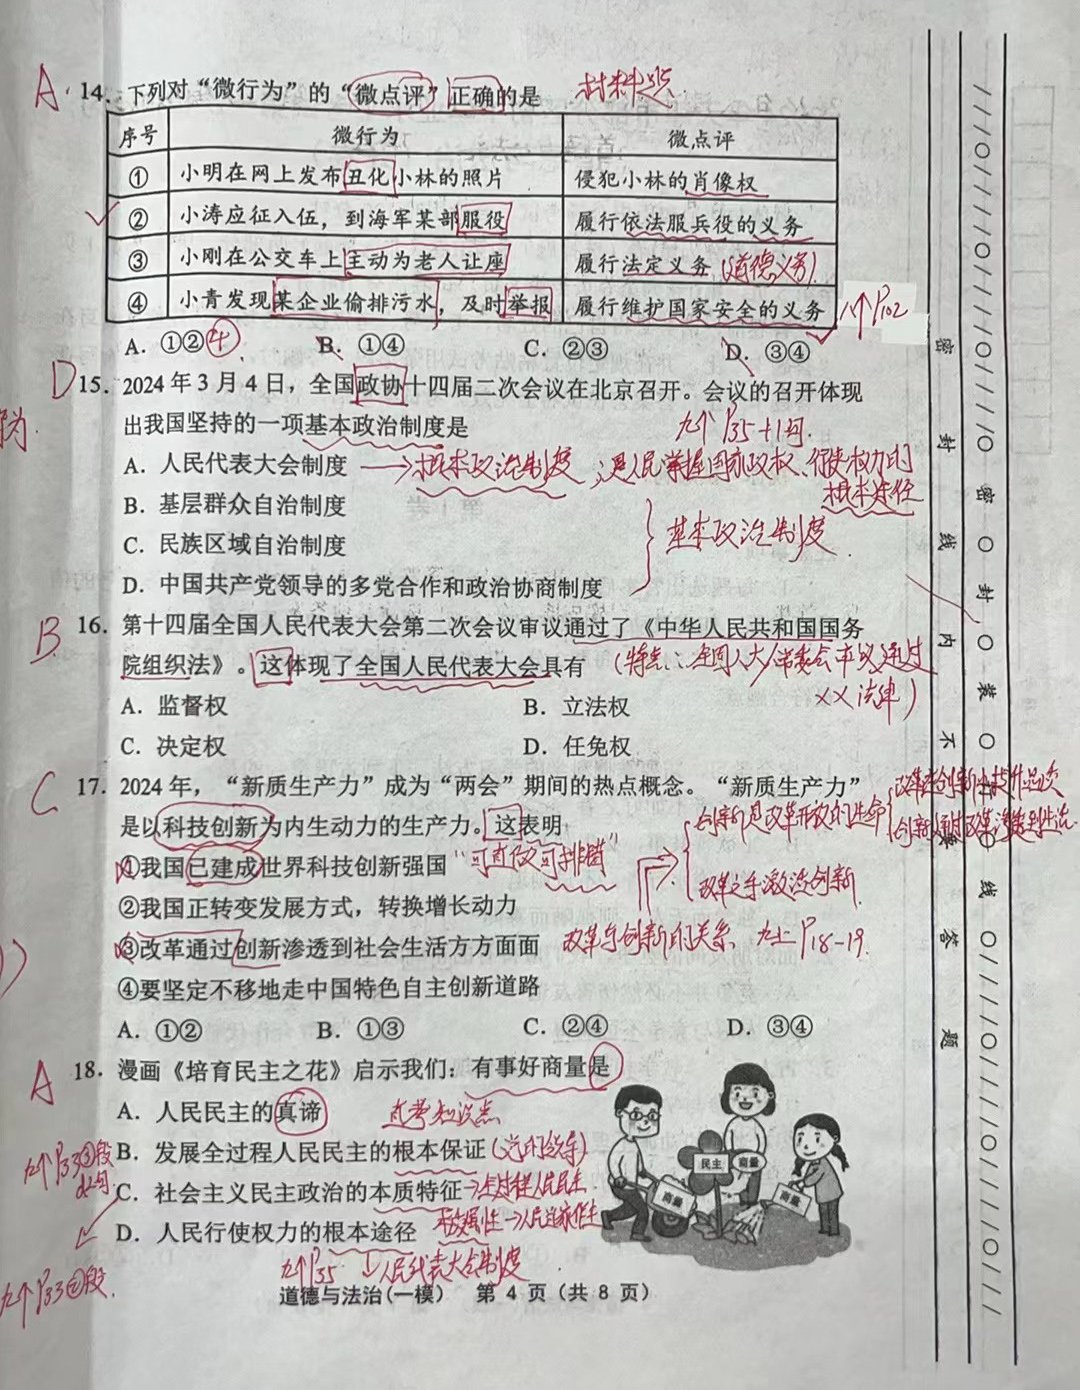 A. 14. 下列对“微行为”的“微点评”正确的是 材料题
序号 微行为 微点评
① 小明在网上发布丑化小林的照片 侵犯小林的肖像权
② 小涛应征入伍，到海军某部服役 履行依法服兵役的义务
③ 小刚在公交车上主动为老人让座 履行法定义务 (道德义务)
④ 小青发现某企业偷排污水，及时举报 履行维护国家安全的义务 八下P102
A. ①②④ B. ①④ C. ②③ D. ③④
D 15. 2024年3月4日，全国政协十四届二次会议在北京召开。会议的召开体现
出我国坚持的一项基本政治制度是 九上P35
A. 人民代表大会制度 →根本政治制度；是人民掌握国家政权、行使权力的
根本途径
B. 基层群众自治制度
C. 民族区域自治制度 基本政治制度
D. 中国共产党领导的多党合作和政治协商制度
B 16. 第十四届全国人民代表大会第二次会议审议通过了《中华人民共和国国务
院组织法》。这体现了全国人民代表大会具有 (特点：全国人大/常委会审议通过
××法律)
A. 监督权 B. 立法权
C. 决定权 D. 任免权
C 17. 2024年，“新质生产力”成为“两会”期间的热点概念。“新质生产力”
是以科技创新为内生动力的生产力。这表明 创新是改革开放的生命
①我国已建成世界科技创新强国 “可直做可排错”
改革之手激活创新
②我国正转变发展方式，转换增长动力
③改革通过创新渗透到社会生活方方面面 改革与创新的关系 九上P18-19.
④要坚定不移地走中国特色自主创新道路
A. ①② B. ①③ C. ②④ D. ③④
A 18. 漫画《培育民主之花》启示我们：有事好商量是
A. 人民民主的真谛 直考知识点
B. 发展全过程人民民主的根本保证(党的领导)
C. 社会主义民主政治的本质特征→全过程人民民主
D. 人民行使权力的根本途径
九上P35 ↓人民代表大会制度
九上P33②段
民主
商量
商量
商量
道德与法治(一模) 第 4 页(共 8 页)
密
封
线
内
不
答
题
密
封
装
线